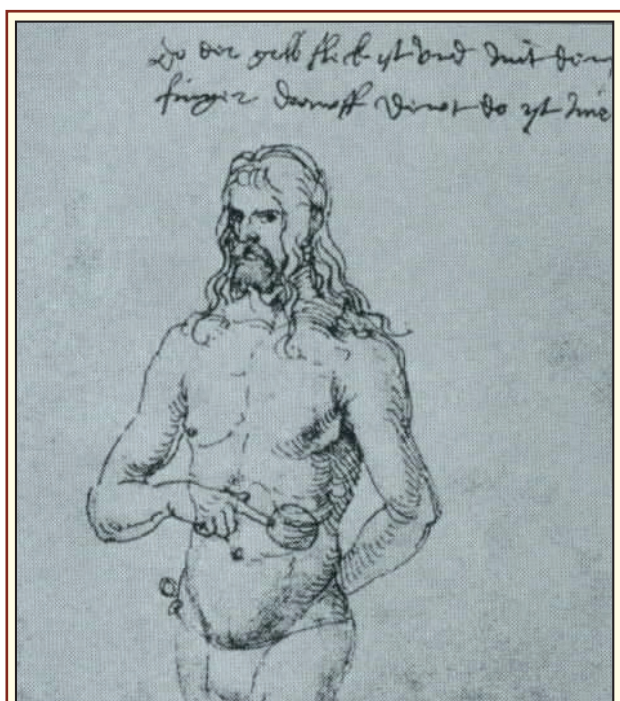 Do der gelb fleck ist und mit dem
finger drawff dewt do ist mir